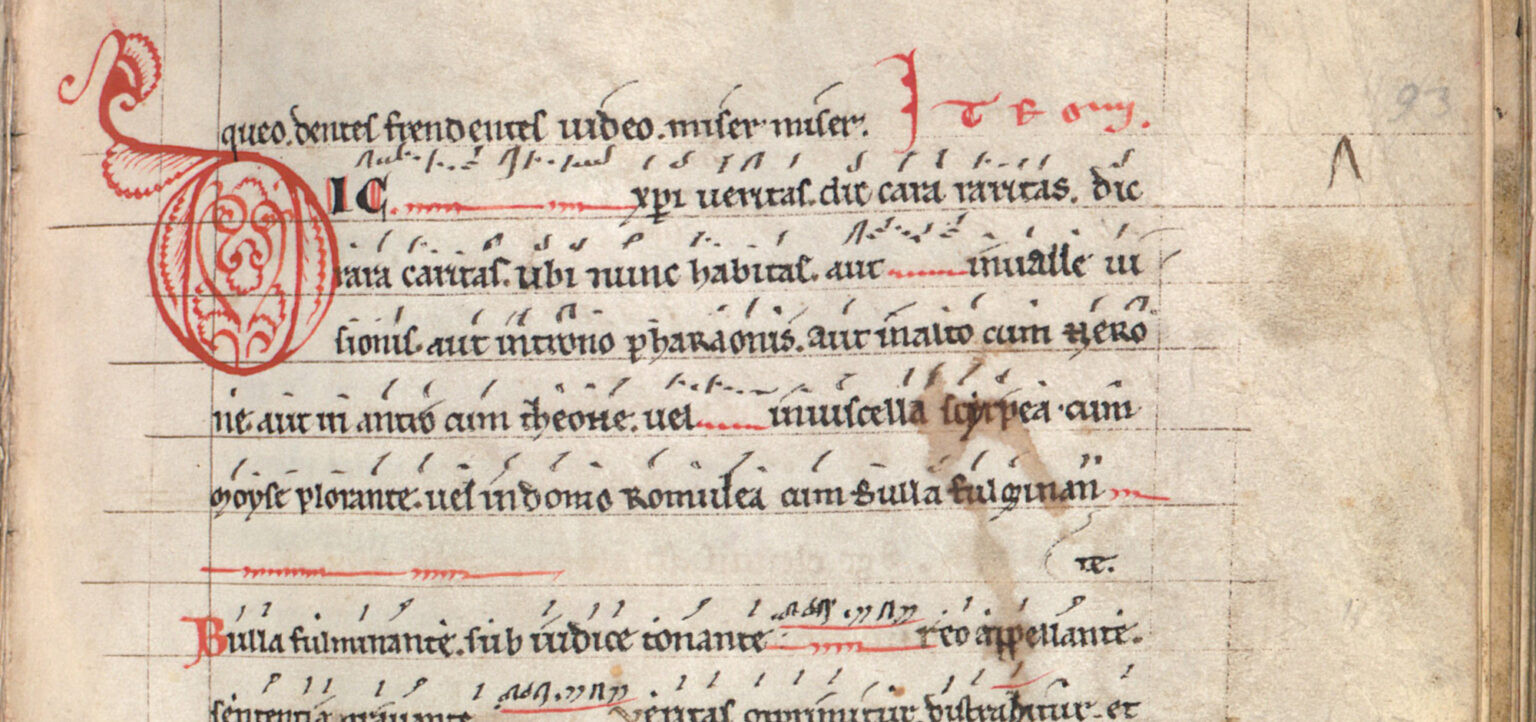 queo. dentes frendentes uideo. miser miser.
93
IC. xpi ueritas. dic cara raritas. dic
rara caritas. ubi nunc habitas. aut inualle ui
sionis. aut introno pharaonis. aut inalto cum nero
ne. aut in antro cum theone. uel inuiscella scyrpea cum
moyse plorante. uel indomo Romulea cum Bulla fulminan
te.
Bulla fulminante. sub iudice tonante reo appellante.
sententia grauante ueritas opprimitur. distrahitur. et